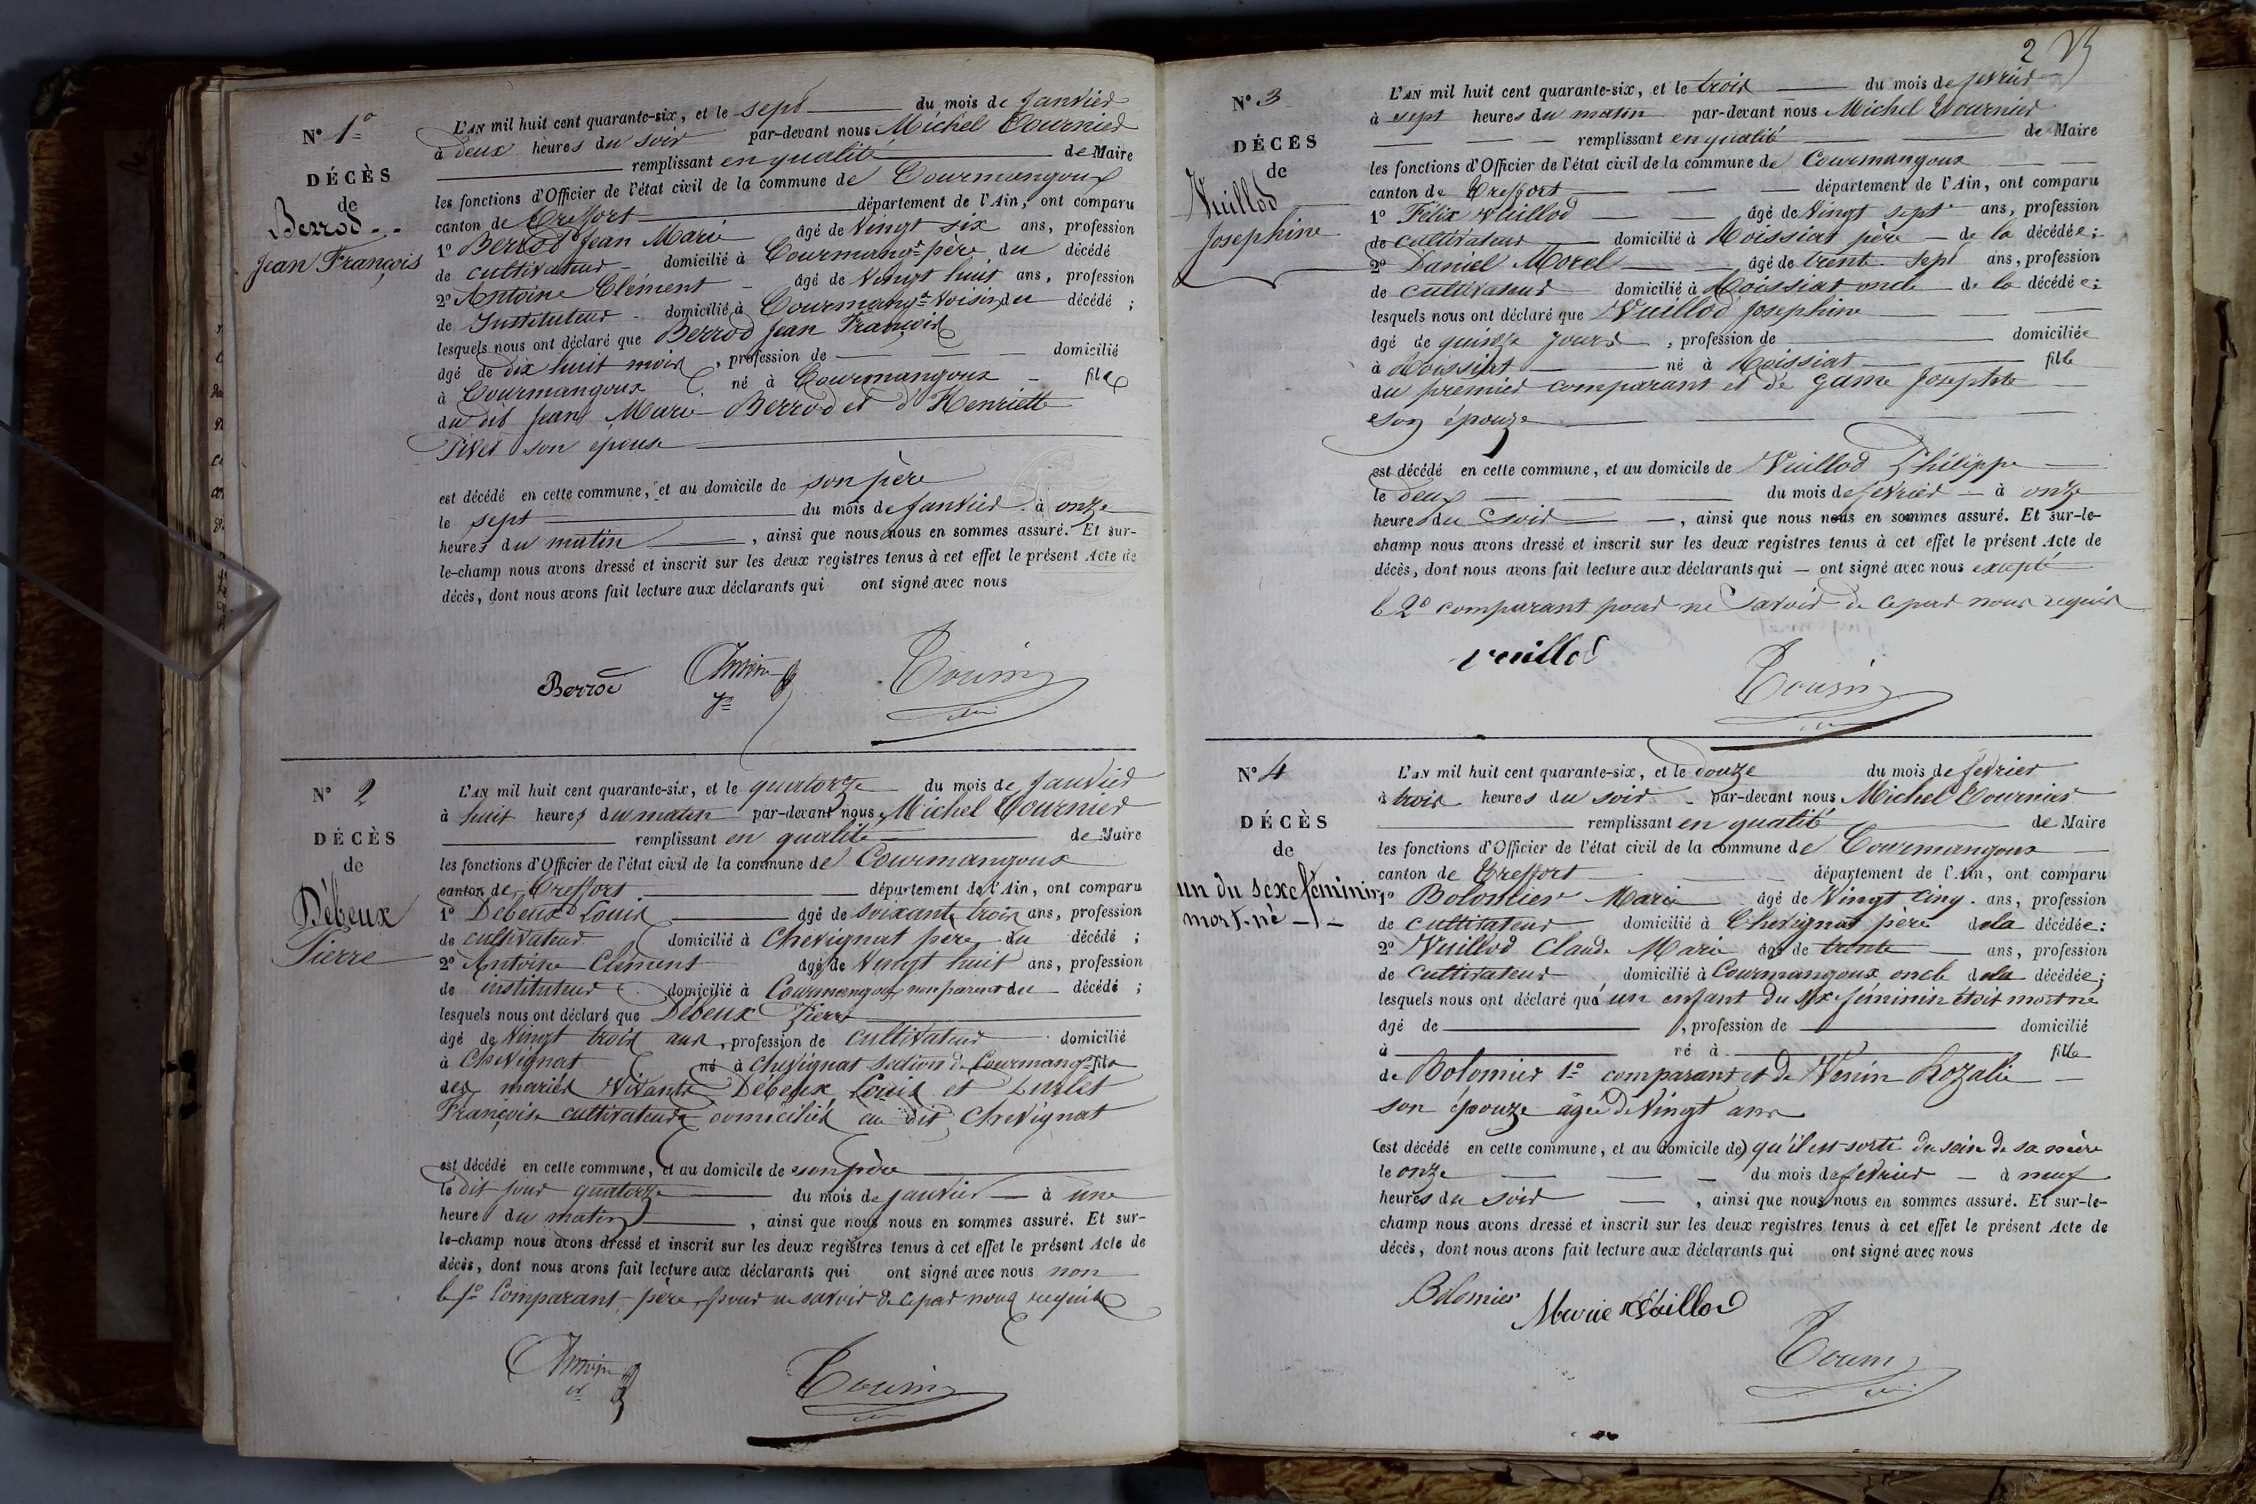 N° 1°
DÉCÈS
de
Berrod
Jean François
L'AN mil huit cent quarante-six, et le sept du mois de Janvier
à deux heures du soir par-devant nous Michel Tournier
remplissant en qualité de Maire
les fonctions d'Officier de l'état civil de la commune de Courmangoux
canton de Treffort département de l'Ain, ont comparu
1° Berrod Jean Marie âgé de Vingt six ans, profession
de cultivateur domicilié à Courmangx père du décédé
2° Antoine Clément âgé de Vingt huit ans, profession
de Instituteur domicilié à Courmangx Voisin du décédé ;
lesquels nous ont déclaré que Berrod Jean François
âgé de dix huit mois, profession de domicilié
à Courmangoux né à Courmangoux fils
du dit Jean Marie Berrod et d'Henriette
Pivet son épouse
est décédé en cette commune, et au domicile de son père
le sept du mois de Janvier à onze
heures du matin, ainsi que nous nous en sommes assuré. Et sur-
le-champ nous avons dressé et inscrit sur les deux registres tenus à cet effet le présent Acte de
décès, dont nous avons fait lecture aux déclarants qui ont signé avec nous
Berrod
N° 2
DÉCÈS
de
Débeux
Pierre
L'AN mil huit cent quarante-six, et le quatorze du mois de Janvier
à huit heures du matin par-devant nous Michel Tournier
remplissant en qualité de Maire
les fonctions d'Officier de l'état civil de la commune de Courmangoux
canton de Treffort département de l'Ain, ont comparu
1° Débeux Louis âgé de soixante trois ans, profession
de cultivateur domicilié à Chevignat père du décédé ;
2° Antoine Clément âgé de Vingt huit ans, profession
de instituteur domicilié à Courmangoux non parent du décédé ;
lesquels nous ont déclaré que Débeux Pierre
âgé de Vingt trois ans, profession de cultivateur domicilié
à Chevignat né à Chevignat section de Courmangx fils
des mariés Vivants Débeux Louis et
Françoise cultivateurs domiciliés au dit Chevignat
est décédé en cette commune, et au domicile de son père
le dit jour quatorze du mois de Janvier à une
heure du matin, ainsi que nous nous en sommes assuré. Et sur-
le-champ nous avons dressé et inscrit sur les deux registres tenus à cet effet le présent Acte de
décès, dont nous avons fait lecture aux déclarants qui ont signé avec nous non
le 1° Comparant père, pour ne savoir de ce par nous requis
2
N° 3
DÉCÈS
de
Vuillod
Josephine
L'AN mil huit cent quarante-six, et le trois du mois de fevrier
à sept heures du matin par-devant nous Michel Tournier
remplissant en qualité de Maire
les fonctions d'Officier de l'état civil de la commune de Courmangoux
canton de Treffort département de l'Ain, ont comparu
1° Félix Vuillod âgé de Vingt sept ans, profession
de cultivateur domicilié à Roissiat père de la décédée ;
2° Daniel Morel âgé de trente sept ans, profession
de cultivateur domicilié à Roissiat oncle de la décédée ;
lesquels nous ont déclaré que Vuillod Josephine
âgé de quinze jours, profession de domiciliée
à Roissiat né à Roissiat fille
du premier comparant et de Game Josephte
son épouze
est décédé en cette commune, et au domicile de Vuillod Philippe
le deux du mois de fevrier à onze
heures du soir, ainsi que nous nous en sommes assuré. Et sur-le-
champ nous avons dressé et inscrit sur les deux registres tenus à cet effet le présent Acte de
décès, dont nous avons fait lecture aux déclarants qui ont signé avec nous excepté
le 2° comparant pour ne savoir de ce par nous requis
Vuillod
N° 4
DÉCÈS
de
un du sexe féminin
mort-né
L'AN mil huit cent quarante-six, et le douze du mois de fevrier
à trois heures du soir par-devant nous Michel Tournier
remplissant en qualité de Maire
les fonctions d'Officier de l'état civil de la commune de Courmangoux
canton de Treffort département de l'Ain, ont comparu
1° Bolomier Marie âgé de Vingt cinq ans, profession
de cultivateur domicilié à Chevignat père de la décédée ;
2° Vuillod Claude Marie âgé de trente ans, profession
de cultivateur domicilié à Courmangoux oncle de la décédée ;
lesquels nous ont déclaré que un enfant du sexe féminin étoit mort né
âgé de, profession de domicilié
à né à fille
de Bolomier 1° comparant et de Venin Rozalie
son épouze âgée de Vingt ans
(est décédé en cette commune, et au domicile de) qu'il est sorti du sein de sa mère
le onze du mois de fevrier à neuf
heures du soir, ainsi que nous nous en sommes assuré. Et sur-le-
champ nous avons dressé et inscrit sur les deux registres tenus à cet effet le présent Acte de
décès, dont nous avons fait lecture aux déclarants qui ont signé avec nous
Bolomier
Marie Vuillod